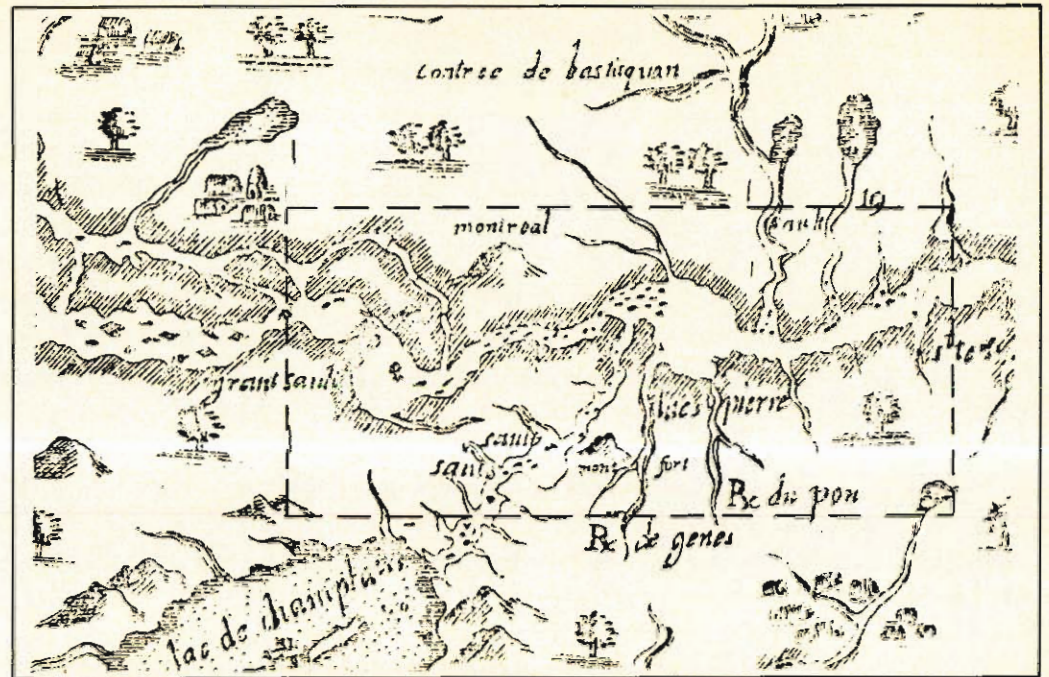 contree de bastisquan
montreal
sault
19
grant sault
lac s pierre
sault
sault
mont fort
Re du pon
Re de genes
lac de champlain